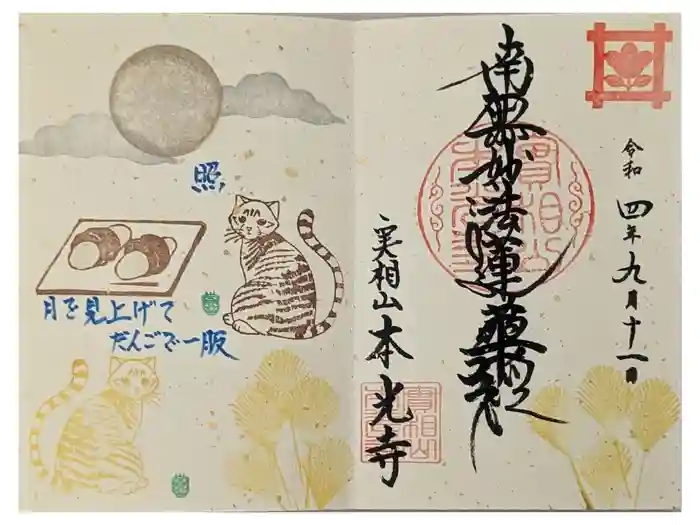 令和四年九月十一日
南無妙法蓮華経
実相山本光寺
實相山
實相山
照
月を見上げて
だんごで一服